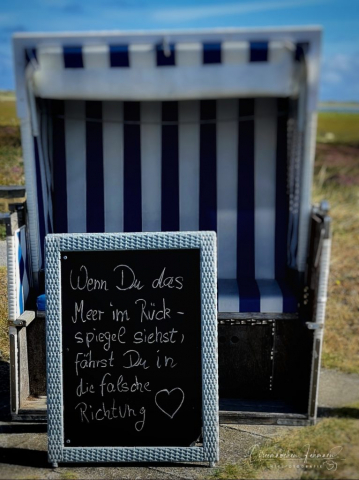 Wenn Du das
Meer im Rück-
spiegel siehst,
fährst Du in
die falsche
Richtung